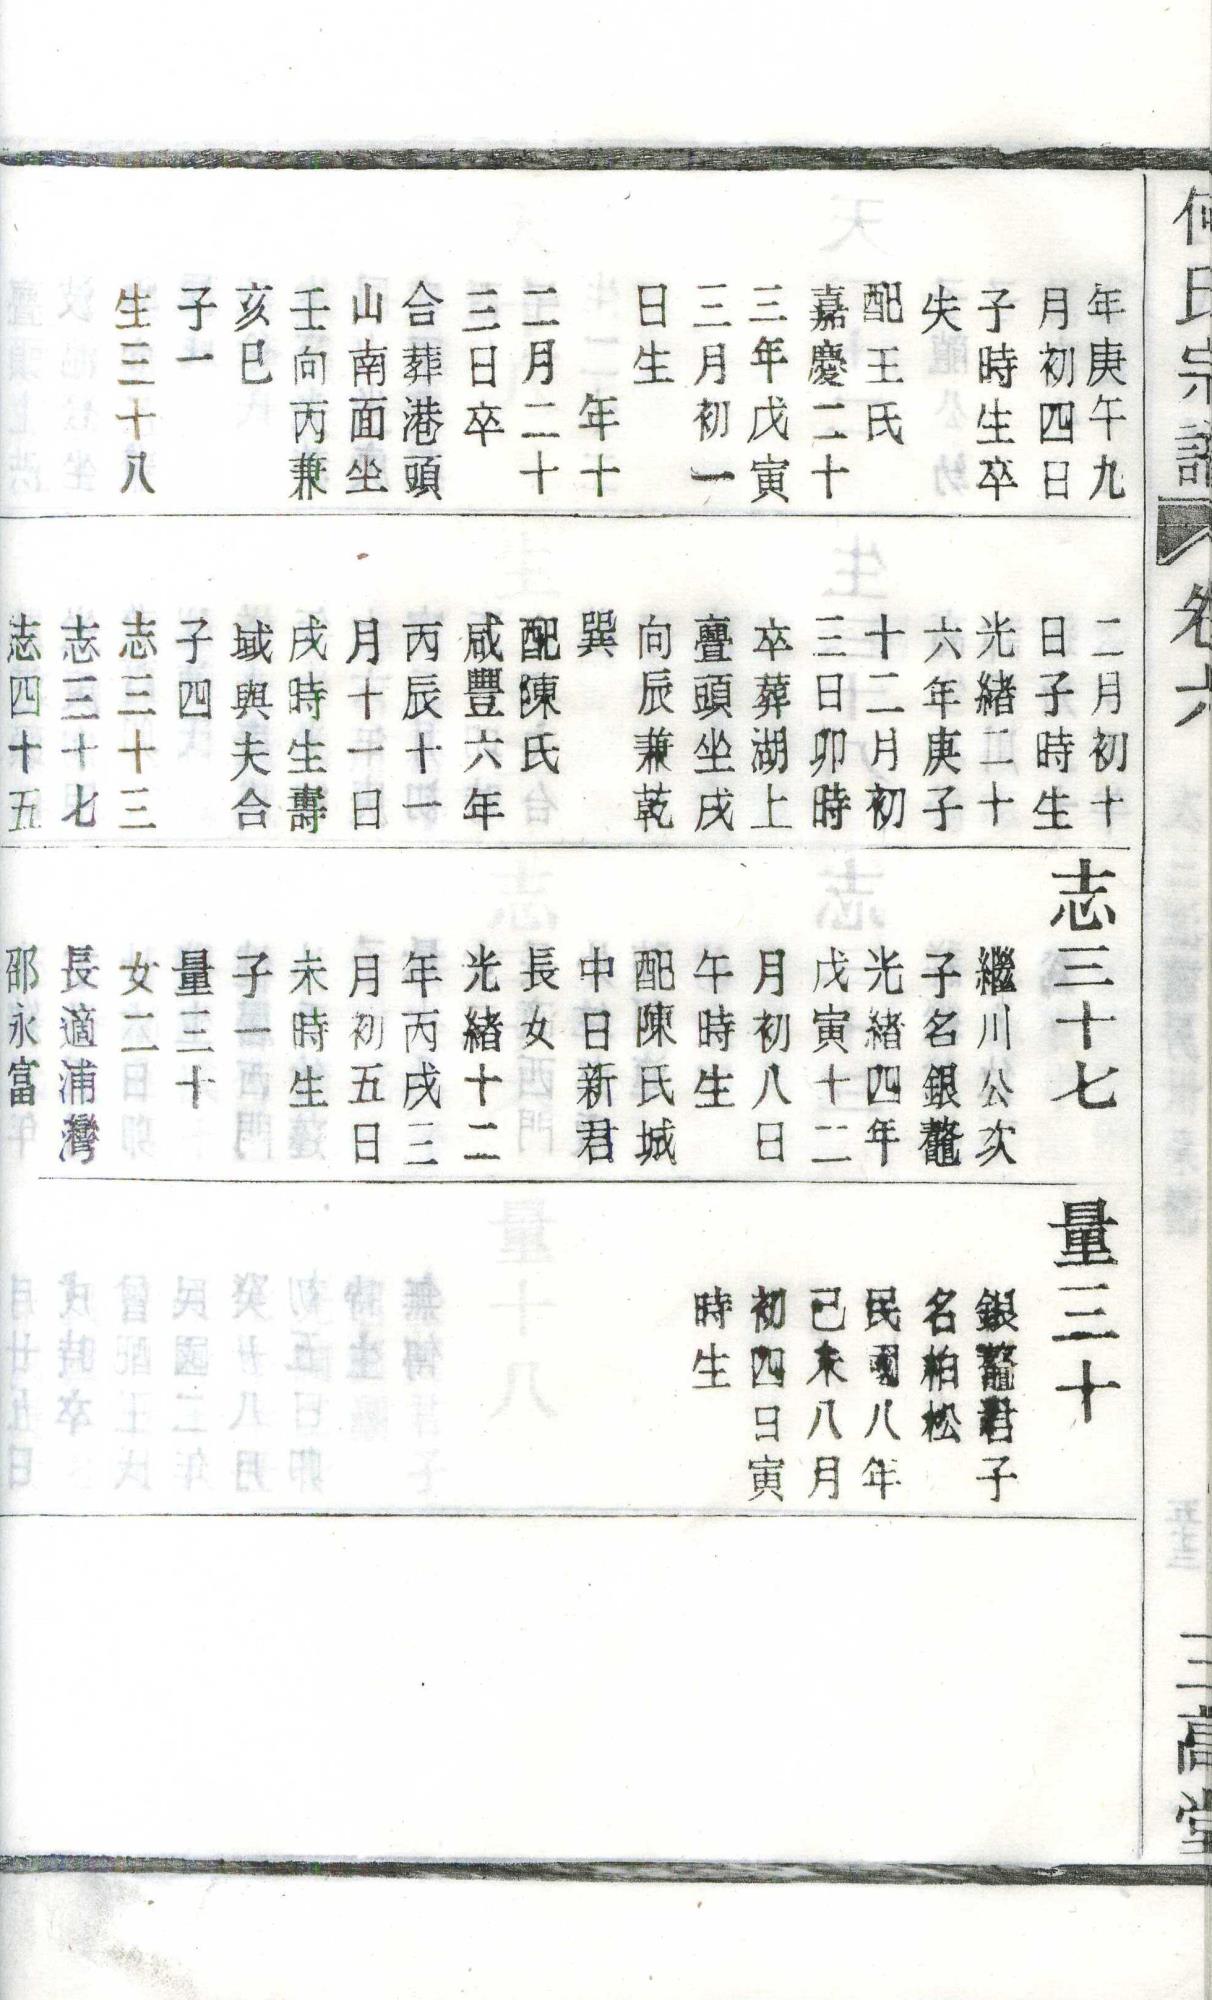 何氏宗譜
卷六
三高堂
年庚午九
月初四日
子時生卒
失
配王氏
嘉慶二十
三年戊寅
三月初一
日生
年十
二月二十
三日卒
合葬港頭
山南面坐
壬向丙兼
亥巳
子一
生三十八
二月初十
日子時生
光緒二十
六年庚子
十二月初
三日卯時
卒葬湖上
亹頭坐戌
向辰兼乾
巽
配陳氏
咸豐六年
丙辰十一
月十一日
戌時生壽
域與夫合
子四
志三十三
志三十七
志四十五
志三十七
繼川公次
子名銀鼇
光緒四年
戊寅十二
月初八日
午時生
配陳氏城
中日新君
長女
光緒十二
年丙戌三
月初五日
未時生
子一
量三十
女二
長適浦灣
邵永富
量三十
銀鼇君子
名柏松
民國八年
己未八月
初四日寅
時生